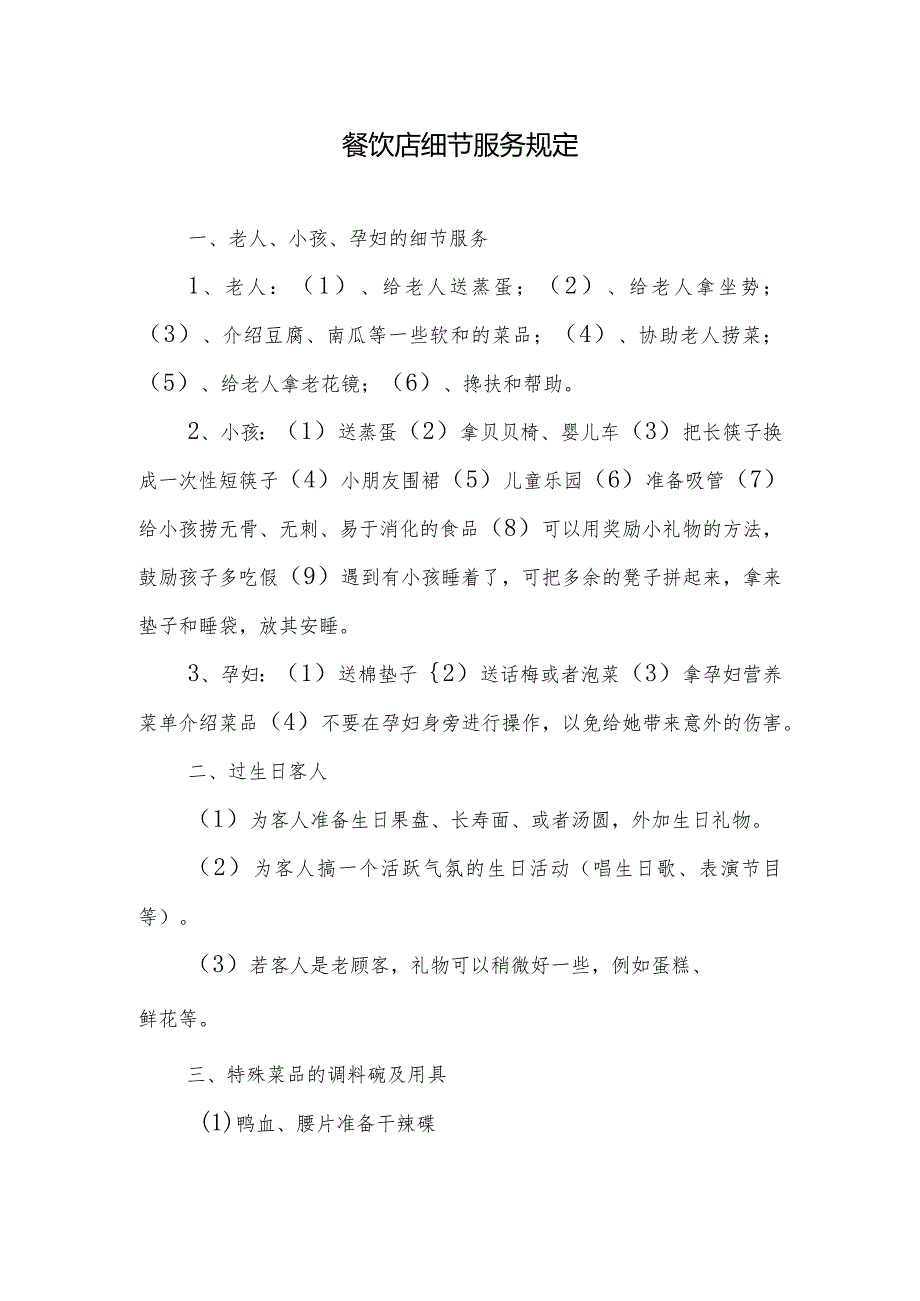 餐饮店细节服务规定
一、老人、小孩、孕妇的细节服务
1、老人：（1）、给老人送蒸蛋；（2）、给老人拿坐势；
（3）、介绍豆腐、南瓜等一些软和的菜品；（4）、协助老人捞菜；
（5）、给老人拿老花镜；（6）、搀扶和帮助。
2、小孩：（1）送蒸蛋（2）拿贝贝椅、婴儿车（3）把长筷子换
成一次性短筷子（4）小朋友围裙（5）儿童乐园（6）准备吸管（7）
给小孩捞无骨、无刺、易于消化的食品（8）可以用奖励小礼物的方法，
鼓励孩子多吃假（9）遇到有小孩睡着了，可把多余的凳子拼起来，拿来
垫子和睡袋，放其安睡。
3、孕妇：（1）送棉垫子｛2）送话梅或者泡菜（3）拿孕妇营养
菜单介绍菜品（4）不要在孕妇身旁进行操作，以免给她带来意外的伤害。
二、过生日客人
（1）为客人准备生日果盘、长寿面、或者汤圆，外加生日礼物。
（2）为客人搞一个活跃气氛的生日活动（唱生日歌、表演节目
等）。
（3）若客人是老顾客，礼物可以稍微好一些，例如蛋糕、
鲜花等。
三、特殊菜品的调料碗及用具
(1)鸭血、腰片准备干辣碟